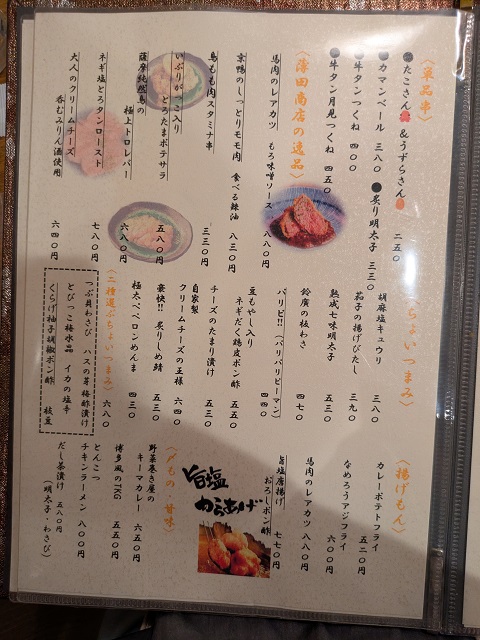 〈単品串〉
●たこさん &うずらさん 二五〇
●カマンベール 三八〇
●炙り明太子 三三〇
●牛タンつくね 四〇〇
●牛タン月見つくね 四五〇
〈薄田商店の逸品〉
馬肉のレアカツ もろ味噌ソース 八八〇円
京鴨のしっとりモモ肉 食べる辣油 八三〇円
鳥もも肉スタミナ串 三三〇円
いぶりがっこ入り
とろたまポテサラ 五八〇円
薩摩純然鳥の
極上トロレバー 六八〇円
ネギ塩とろタンロースト 七八〇円
大人のクリームチーズ
呑むみりん酒使用 六四〇円
〈ちょいつまみ〉
胡麻塩キュウリ 三八〇
茄子の揚げびたし 三九〇
熟成七味明太子 五三〇
鈴廣の板わさ 四七〇
パリピ!!(パリパリピーマン) 四四〇
豆もやし入り
ネギだく鶏皮ポン酢 五五〇
チーズのたまり漬け 五三〇
自家製
クリームチーズの王様 六四〇
豪快!!炙りしめ鯖 五三〇
極太ペペロンめんま 四三〇
〈二種選ぶちょいつまみ〉 六八〇
つぶ貝わさび ハスの芽梅酢漬け
とびっこ梅水晶 イカの塩辛
くらげ柚子胡椒ポン酢 枝豆
〈揚げもん〉
カレーポテトフライ 五二〇円
なめろうアジフライ 六〇〇円
馬肉のレアカツ 八八〇円
旨塩唐揚げ
おろしポン酢 七七〇円
旨塩
からあげ
〈〆もの・甘味〉
野菜巻き屋の
キーマカレー 六五〇円
博多風のTKG 五五〇円
とんこつ
チキンラーメン 八〇〇円
だし茶漬け 五八〇円
(明太子・わさび)